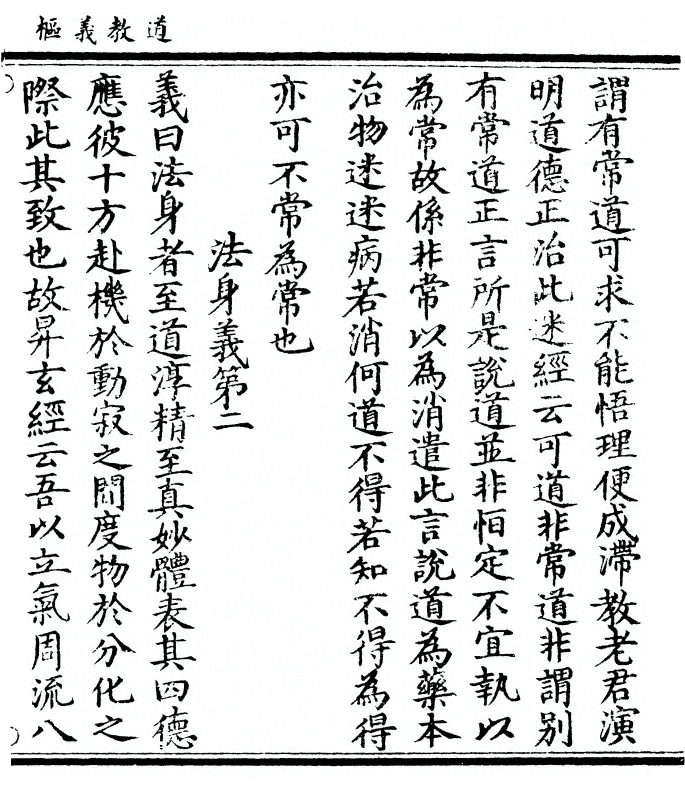 道教義樞
謂有常道可求不能悟理便成滯教老君演
明道德正治此迷經云可道非常道非謂别
有常道正言所是說道並非恒定不宜執以
為常故係非常以為消遣此言說道為藥本
治物迷迷病若消何道不得若知不得為得
亦可不常為常也
法身義第二
義曰法身者至道淳精至真妙體表其四德
應彼十方赴機於動寂之間度物於分化之
際此其致也故昇玄經云吾以立氣周流八